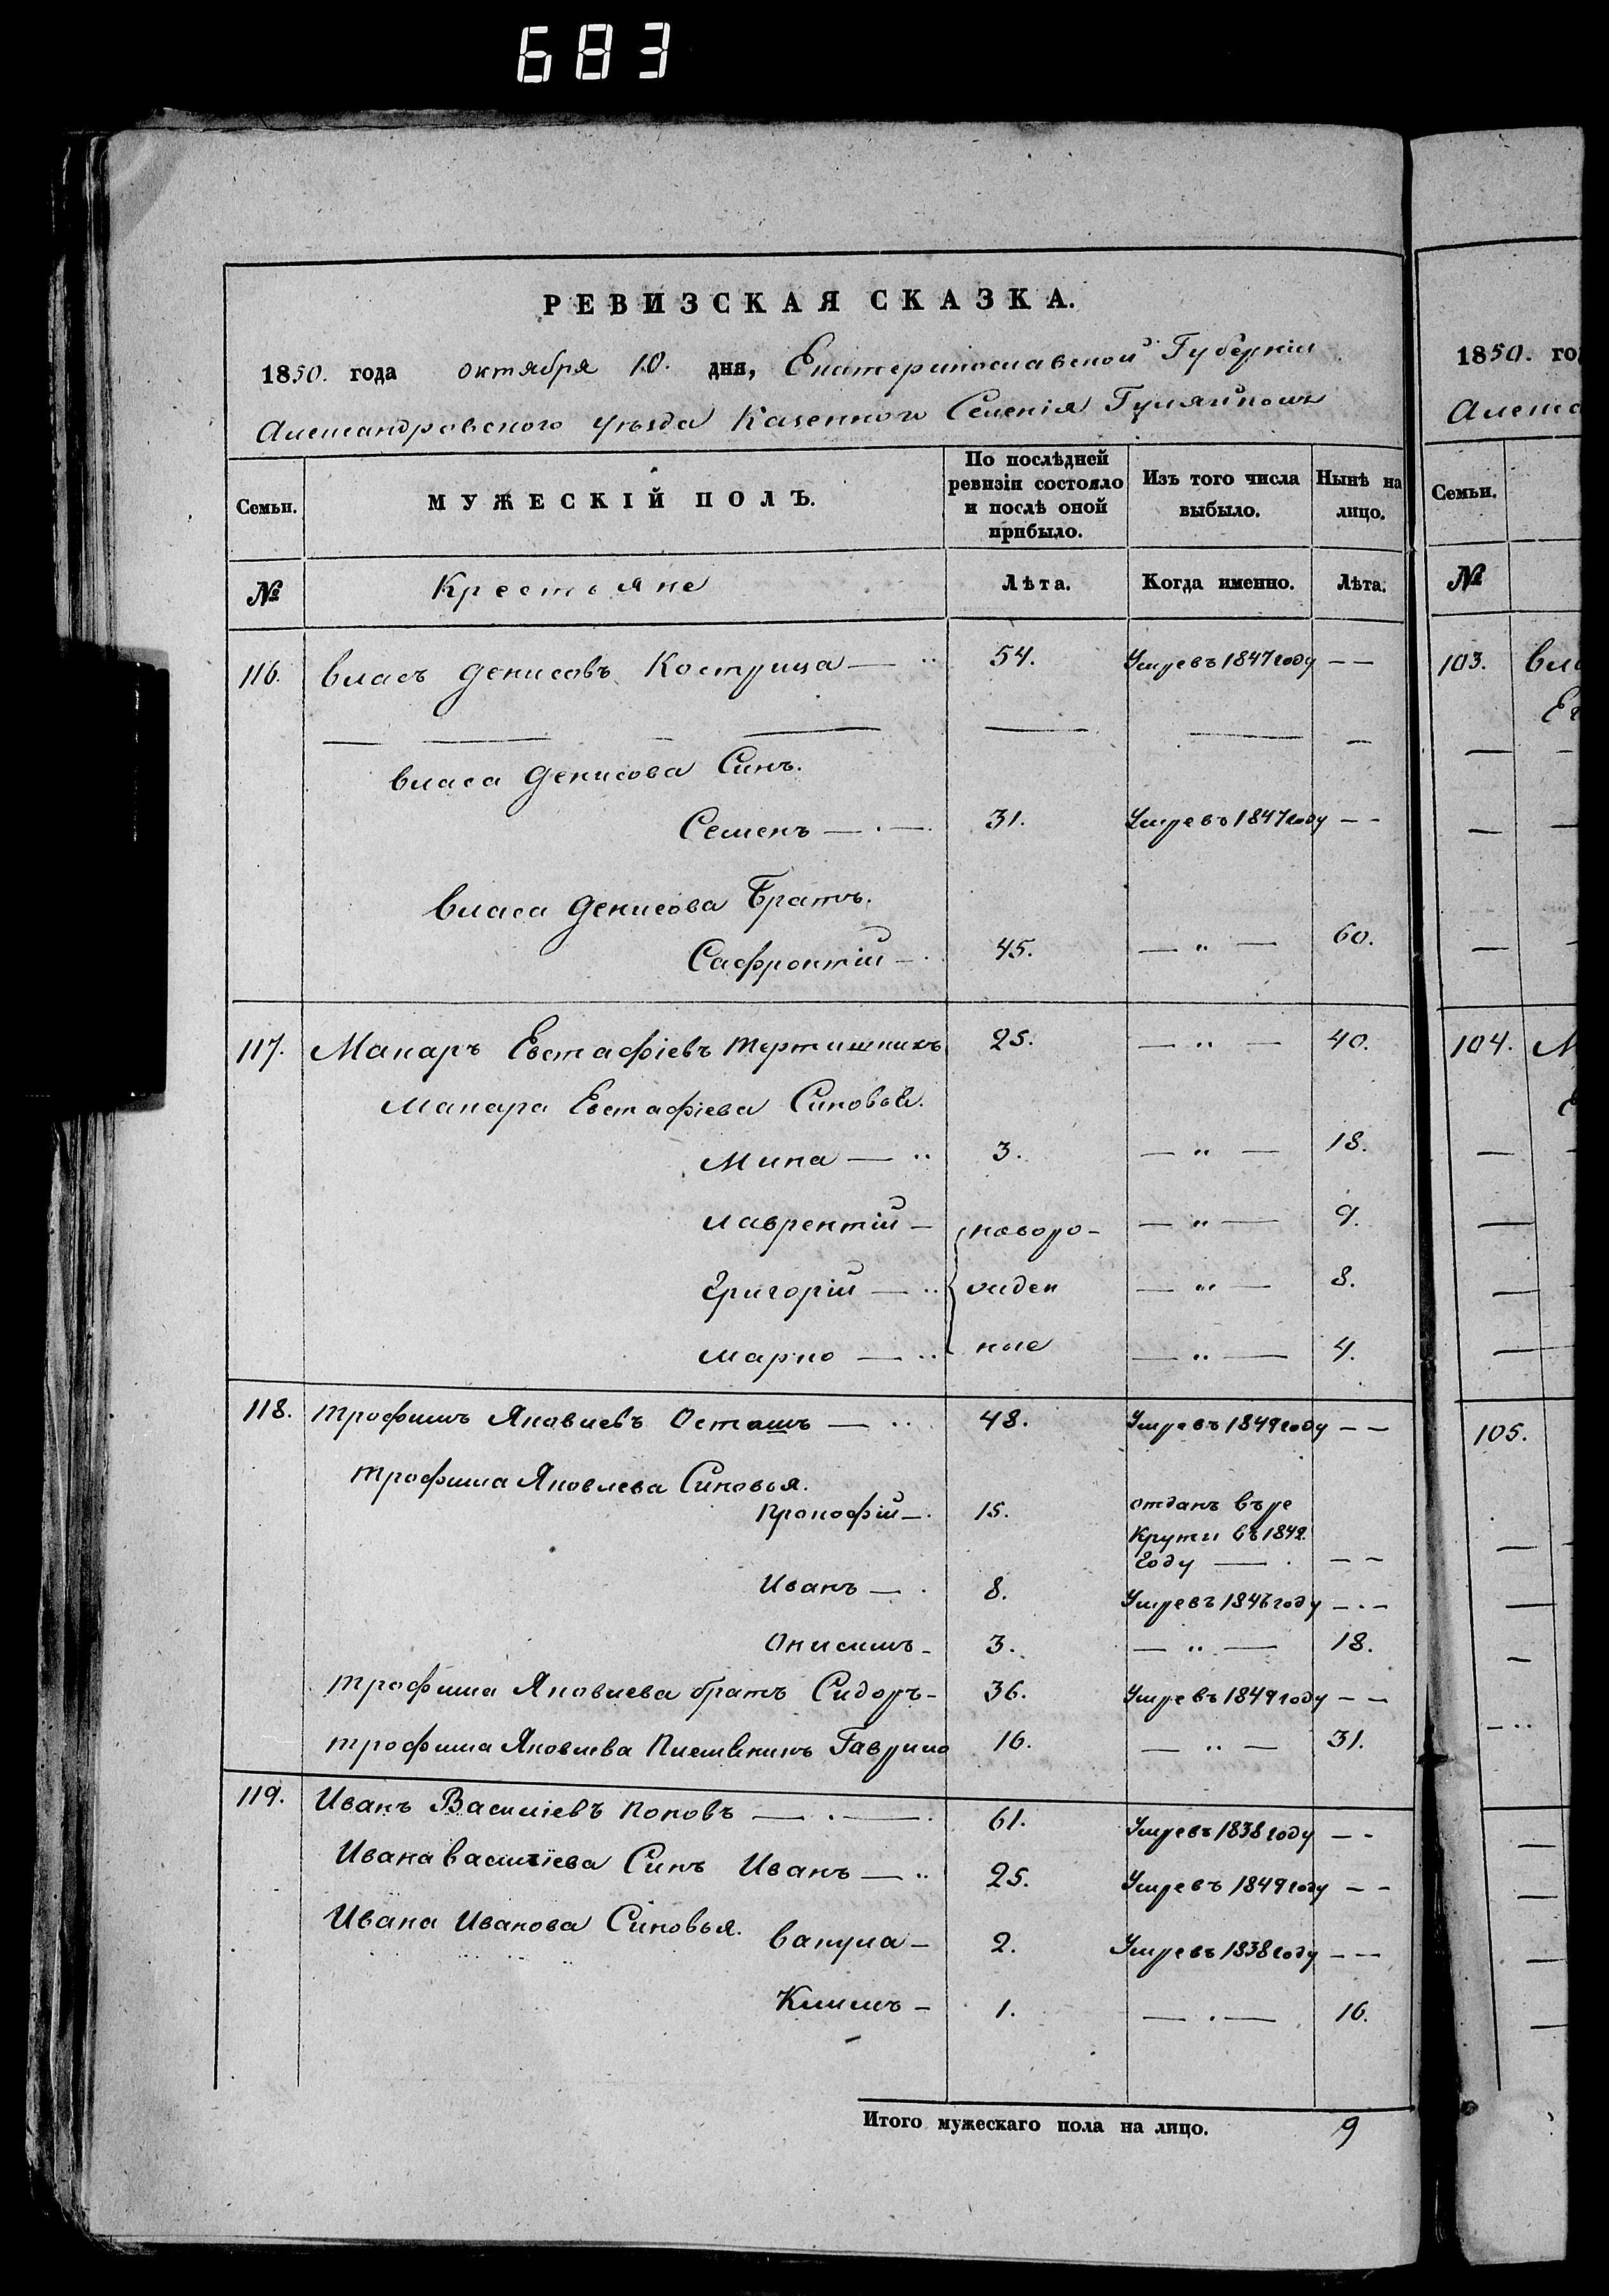 683
РЕВИЗСКАЯ СКАЗКА.
1850. года октября 10. дня, Екатеринославской Губерніи
Александровского уѣзда Казенного Селенія Гуляйполъ
Семьи.
МУЖЕСКІЙ ПОЛЪ.
По послѣдней ревизіи состояло и послѣ оной прибыло.
Изъ того числа выбыло.
Нынѣ на лицо.
№ Крестьяне Лѣта. Когда именно. Лѣта.
116. Власъ Денисовъ Кострица — 54. Умре въ 1847 году — —
Власа Денисова Синъ.
Семенъ — 31. Умре въ 1847 году — —
Власа Денисова Братъ.
Сафронтій — 45. — " — 60.
117. Макаръ Евстафіевъ Тертишникъ 25. — " — 40.
Макара Евстафіева Синовья.
Мина — 3. — " — 18.
Лаврентій — новоро- — " — 9.
Григорій — жден — " — 8.
Марко — ные — " — 4.
118. Трофимъ Яковлевъ Осташъ — 48. Умре въ 1849 году — —
Трофима Яковлева Синовья.
Прокофій — 15. отданъ въ ре
круты въ 1842.
году — — —
Иванъ — 8. Умре въ 1846 году — —
Онисимъ — 3. — " — 18.
Трофима Яковлева братъ Сидоръ — 36. Умре въ 1849 году — —
Трофима Яковлева Племѣникъ Гаврило 16. — " — 31.
119. Иванъ Василіевъ Поповъ — 61. Умре въ 1838 году — —
Ивана Василіева Синъ Иванъ — 25. Умре въ 1849 году — —
Ивана Иванова Синовья.
Вакула — 2. Умре въ 1838 году — —
Климъ — 1. — . — 16.
Итого мужескаго пола на лицо. 9
1850. го
Семьи.
№
103. Вла
104. М
105.